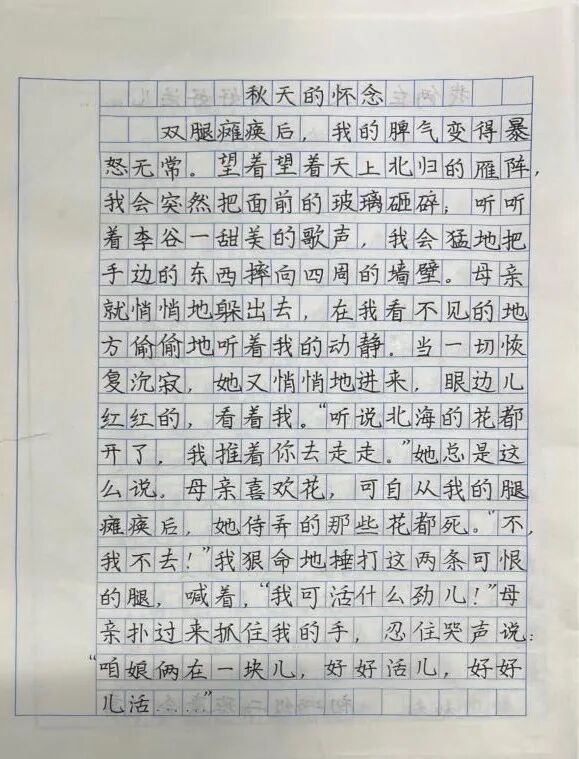 秋天的怀念
双腿瘫痪后，我的脾气变得暴
怒无常。望着望着天上北归的雁阵，
我会突然把面前的玻璃砸碎；听听
着李谷一甜美的歌声，我会猛地把
手边的东西摔向四周的墙壁。母亲
就悄悄地躲出去，在我看不见的地
方偷偷地听着我的动静．当一切恢
复沉寂，她又悄悄地进来，眼边儿
红红的，看着我。“听说北海的花都
开了，我推着你去走走。”她总是这
么说．母亲喜欢花，可自从我的腿
瘫痪后，她侍弄的那些花都死。“不，
我不去！”我狠命地捶打这两条可恨
的腿，喊着，“我可活什么劲儿！”母
亲扑过来抓住我的手，忍住哭声说：
“咱娘俩在一块儿，好好活儿，好好
儿活……”